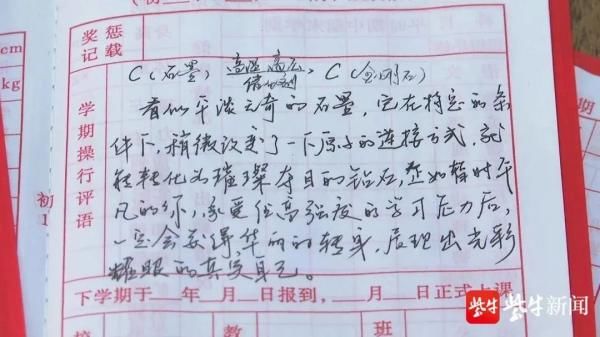 cm
kg
奖惩
记载
C(石墨) 高温 高压 C(金刚石)
催化剂
学期操行评语
初1
看似平淡无奇的石墨,它在特定的条
件下,稍微改变了一下原子的连接方式,就
能转化为璀璨夺目的钻石,正如暂时平
凡的你,承受住高强度的学习压力后,
一定会获得华丽的转身,展现出光彩
耀眼的真实自己。
下学期于 年 月 日报到, 月 日正式上课
校 教 班
紫牛 紫牛新闻